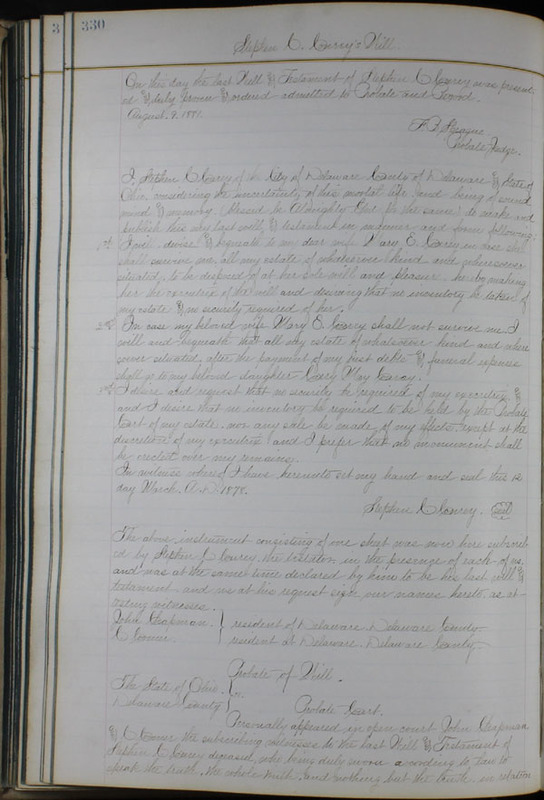 3 330
Stephen C. Conrey's Will.
On this day the last Will & Testament of Stephen C Conrey was present-
ed & duly proven & ordered admitted to Probate and Record.
August. 9. 1881.
F. B. Sprague
Probate Judge.
I, Stephen C Conrey of the City of Delaware County of Delaware & State of
Ohio, considering the uncertainty of this mortal life, and being of sound
mind & memory (blessed be Almighty God for the same) do make and
publish this my last will & testament in manner and form following:
1st I give, devise & bequeath to my dear wife Mary E. Conrey in case she
shall survive me, all my estate of whatsoever kind and wheresoever
situated, to be disposed of at her sole will and pleasure. hereby making
her the executrix of this will and desiring that no inventory be taken of
my estate & no security required of her.
2nd In case my beloved wife Mary E Conrey shall not survive me, I
will and bequeath that all my estate of whatsoever kind and where
soever situated, after the payment of my just debts & funeral expenses
shall go to my beloved daughter Cary May Conrey
3rd I desire and request that no security be required of my executrix &
and I desire that no inventory be required to be held by the Probate
Court of my estate. nor any sale be made of my effects. except at the
discretion of my executrix and I prefer that no monument shall
be erected over my remains.
In witness whereof I have hereunto set my hand and seal this 12
day March. A.D. 1878.
Stephen C Conrey. seal
The above instrument consisting of one sheet was now here subscrib
ed by Stephen C Conrey. the testator, in the presence of each of us.
and was at the same time declared by him to be his last will &
testament. and we at his request sign our names hereto as at-
testing witnesses.
John Chapman. } resident of Delaware Delaware County
C } resident at Delaware. Delaware County
Probate of Will.
The State of Ohio }
Delaware County } ss. Probate Court.
Personally appeared in open court John Chapman
& C the subscribing witnesses to the last Will & Testament of
Stephen C Conrey deceased, who being duly sworn according to law to
speak the truth, the whole truth. and nothing but the truth in relation